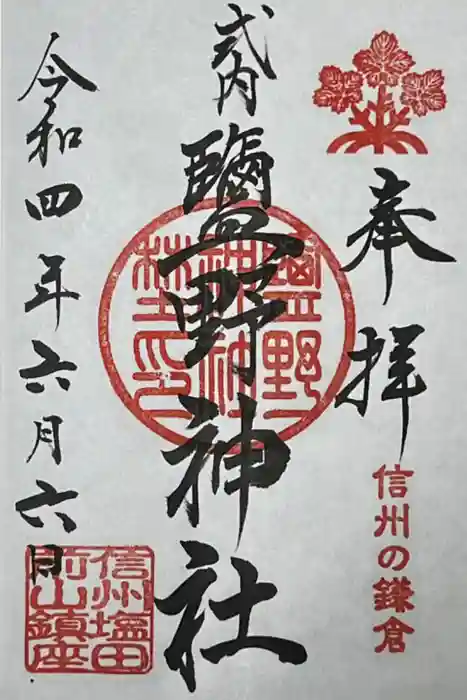 奉拝
信州の鎌倉
式内
鹽野神社
鹽野神社社印
令和四年六月六日
信州塩田
前山鎮座